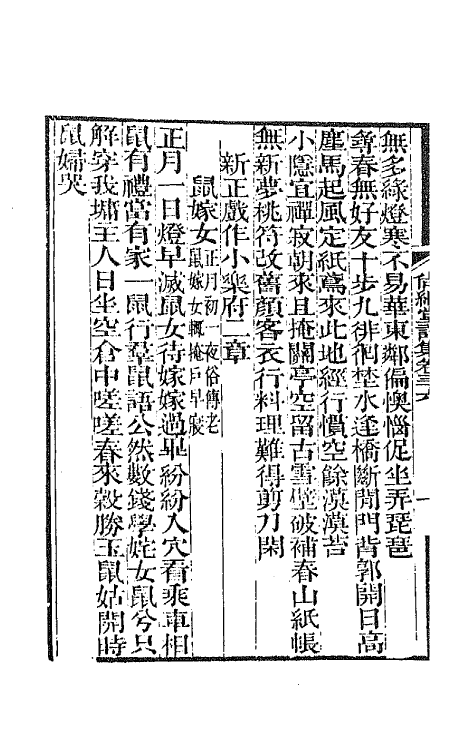 無多緣燈寒不易華東鄰偏懊惱促坐弄琵琶
春無好友十步九徘徊埜水逢橋斷閒門背郭開日高
塵馬起風定紙鳶來此地經行慣空餘漠漠苔
小隱宜禪寂朝來且掩關亭空留古雪壁破補春山紙帳
無新夢桃符改舊顏客衣行料理難得剪刀閑
新正戲作小樂府二章
鼠嫁女正月初一夜俗傳老
鼠嫁女輒掩戸早寢
正月一日燈早滅鼠女待嫁嫁過畢紛紛入穴看乘車相
鼠有禮當有家一鼠行羣鼠語公然數錢學姹女鼠兮只
解穿我墉主人日坐空倉中嗟嗟春來穀勝玉鼠姑開時
鼠婦哭